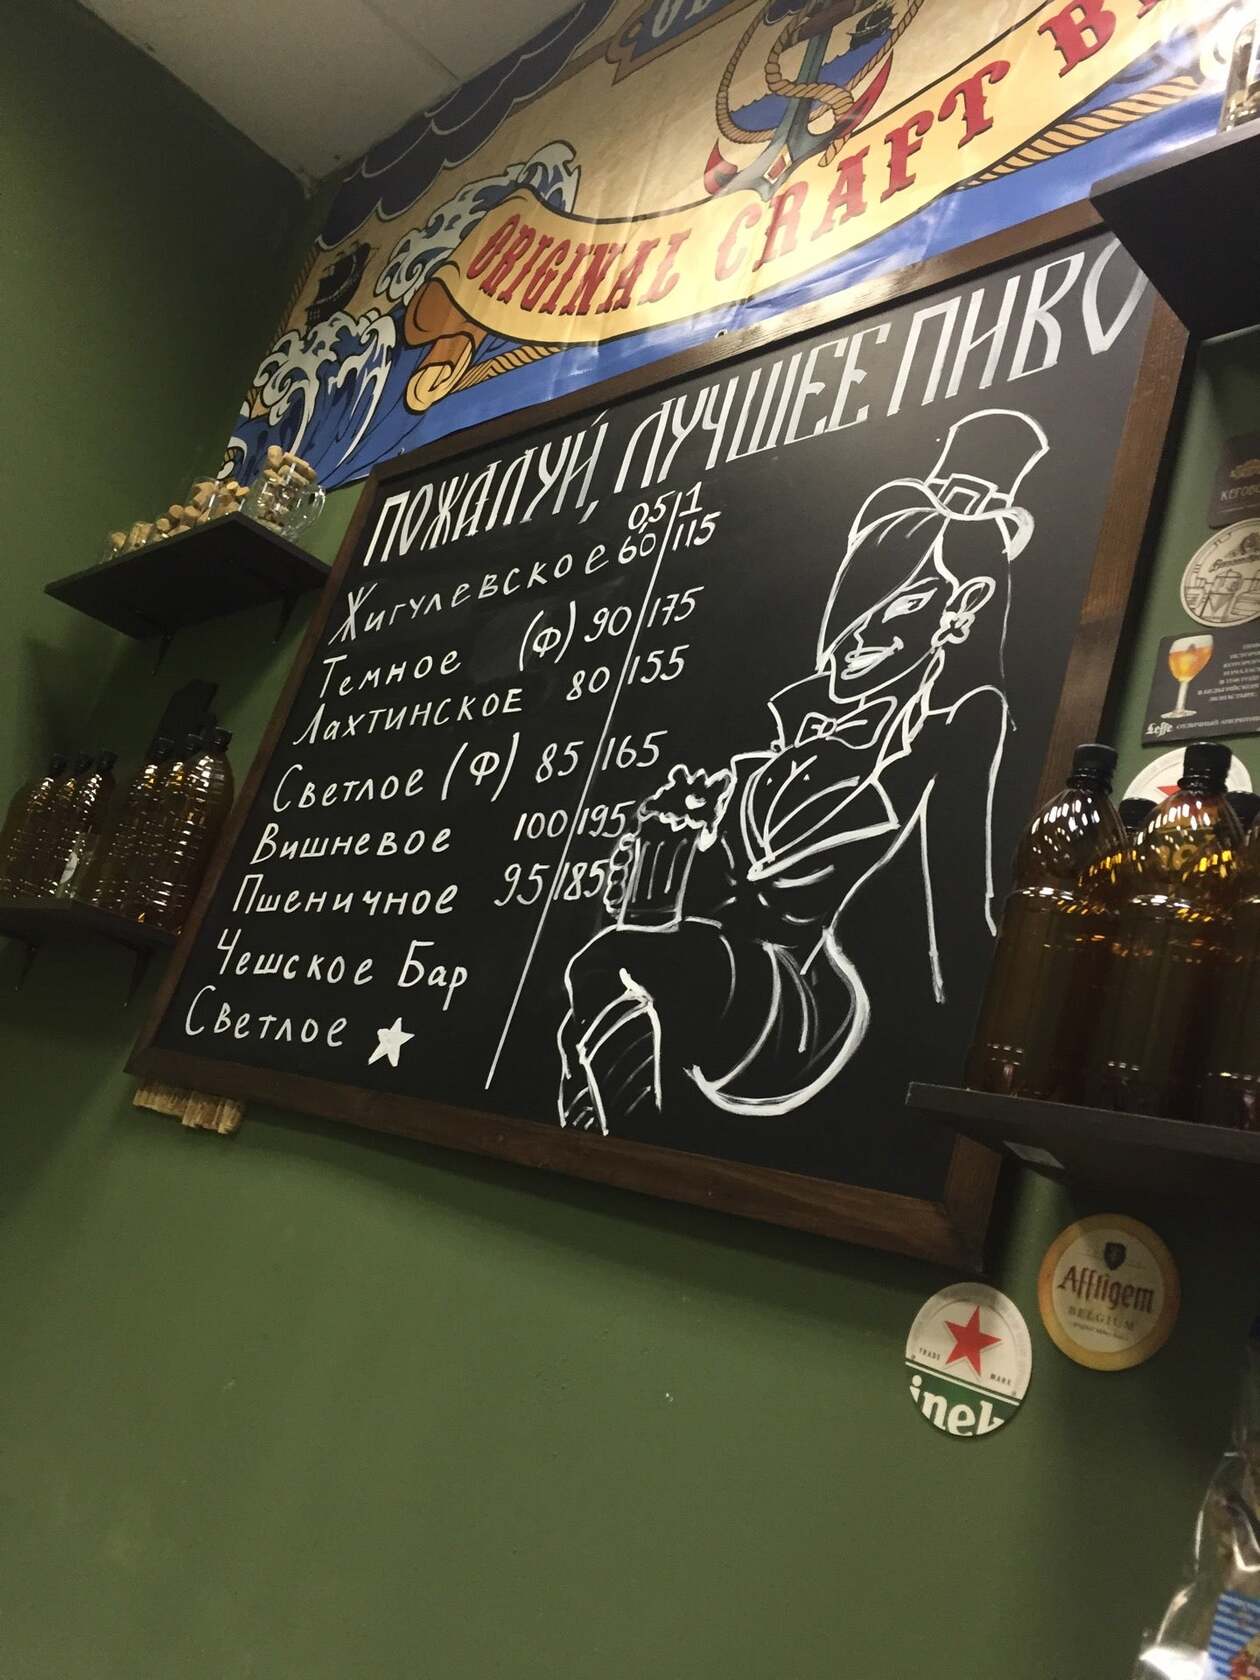 ORIGINAL CRAFT B
ПОЖАЛУЙ, ЛУЧШЕЕ ПИВО
0,5 1
Жигулевское 60 115
Темное (Ф) 90 175
Лахтинское 80 155
Светлое (Ф) 85 165
Вишневое 100 195
Пшеничное 95 185
Чешское Бар
Светлое
Leffe
Affligem
BELGIUM
TRADE MARK
inek